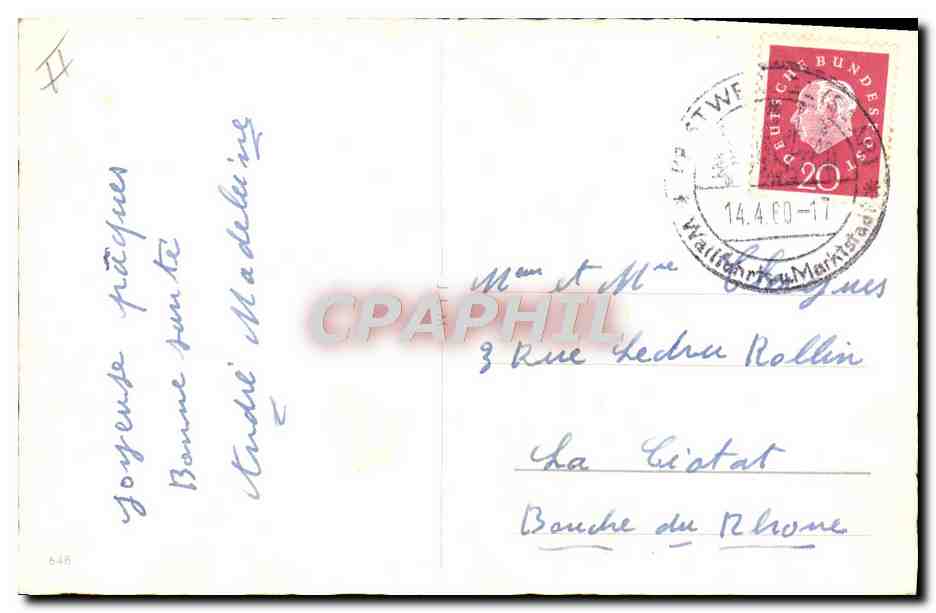 II
Joyeuse pâques
Bonne santé
André Madeleine
DEUTSCHE BUNDESPOST
20
14.4.60-17
Wallfahrts u. Marktstadt
Mr et Mme
3 Rue Ledru Rollin
La Ciotat
Bouche du Rhone
CPAPHIL
646